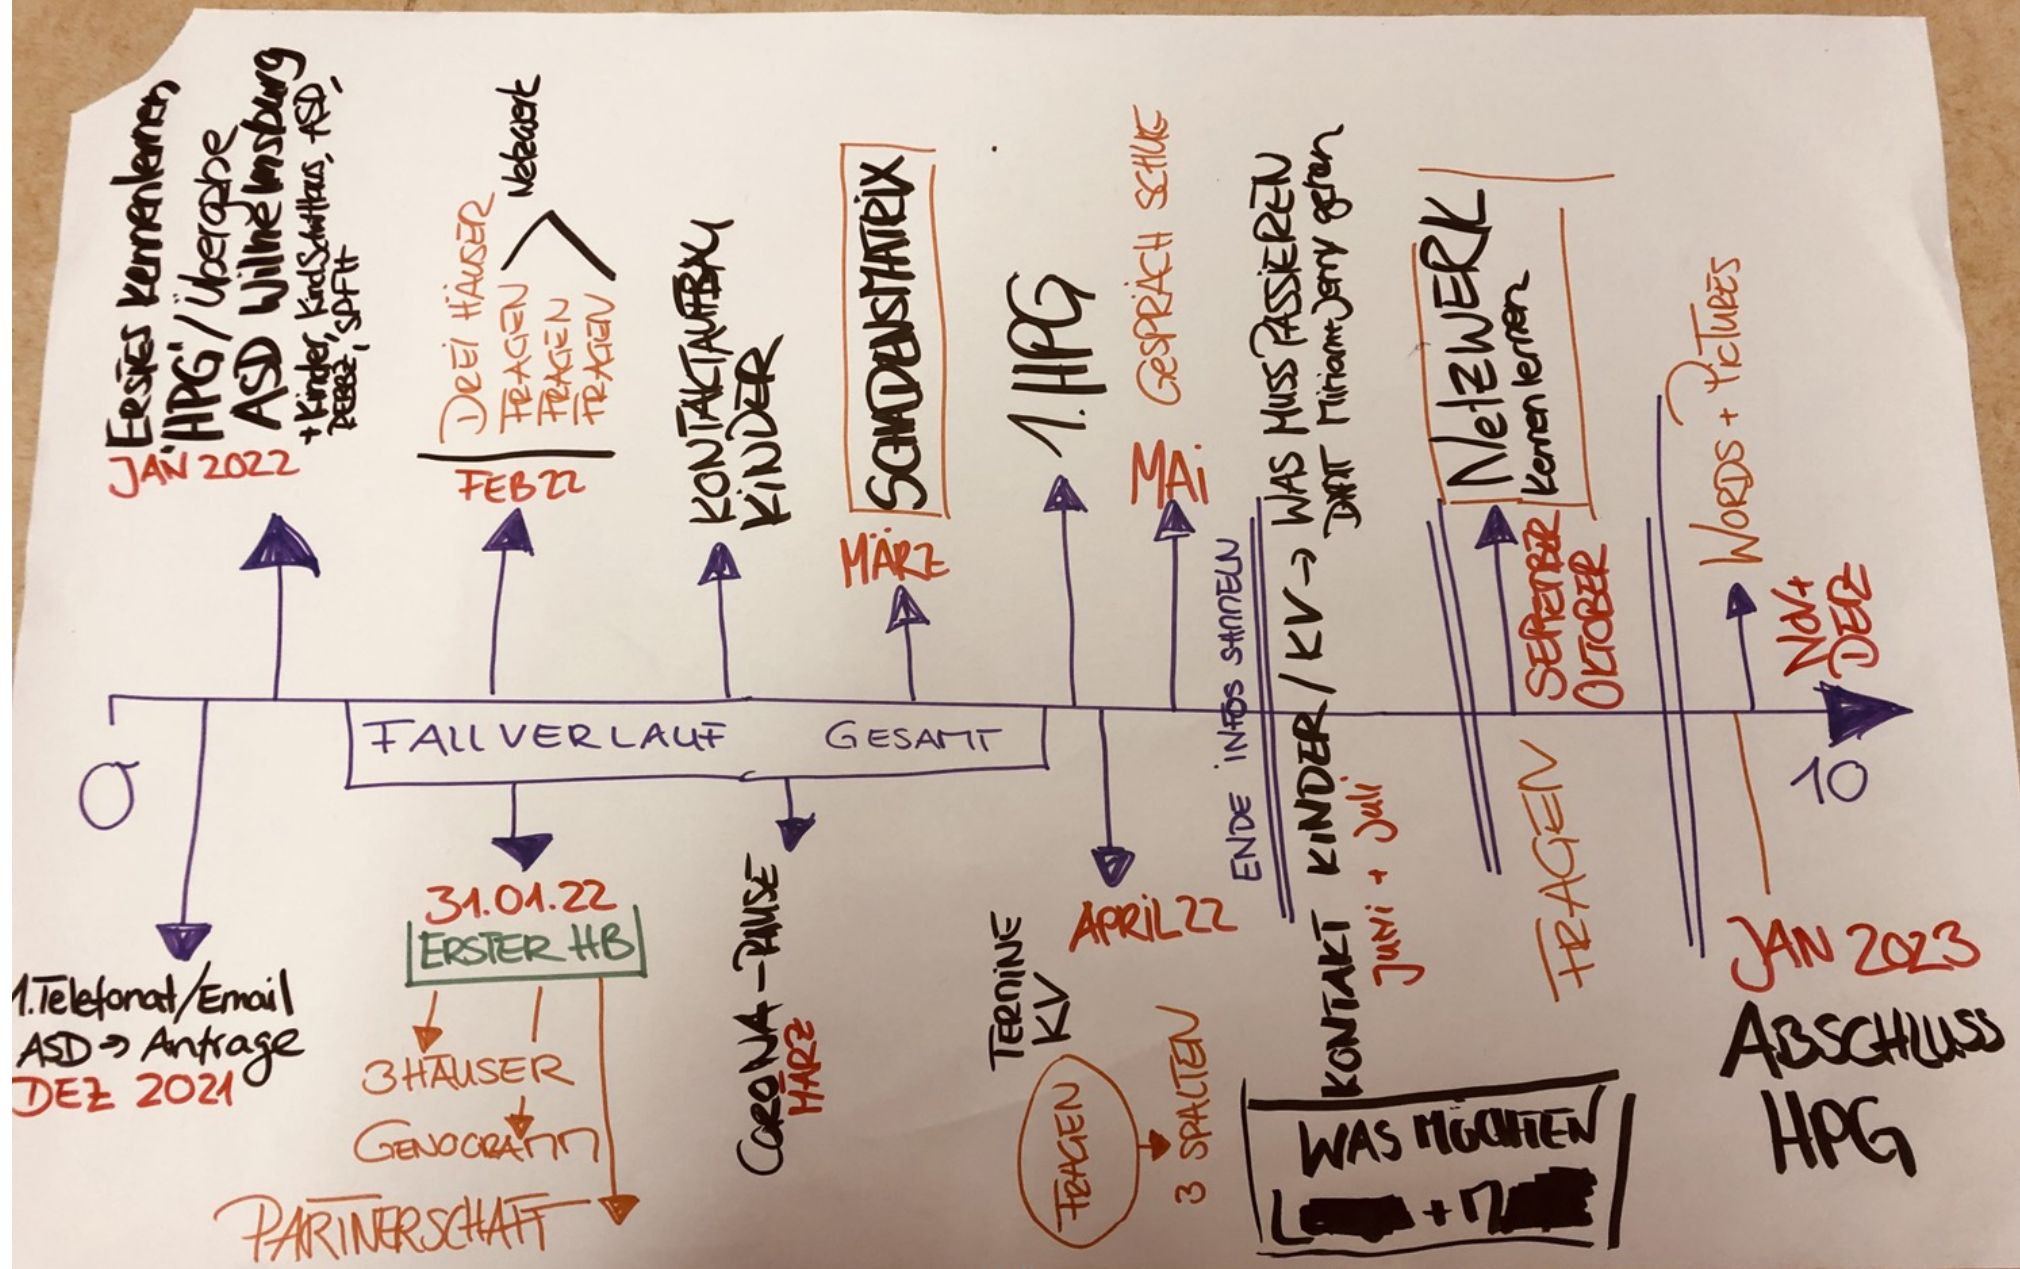 ERSTES Kennenlernen
HPG/Übergabe
ASD Wilhelmsburg
+ Kinder, KindSchutthaus, + ASD,
REBBZ, SPFH
JAN 2022
DREI HÄUSER
FRAGEN
FRAGEN
FRAGEN
> Netzwerk
FEB 22
KONTAKTAUFBAU
KINDER
SCHADENSMATRIX
MÄRZ
1. HPG
GESPRÄCH SCHULE
MAI
ENDE INFOS SAMMELN
KONTAKT KINDER/KV → WAS MUSS PASSIEREN
DAMIT Miriam+Jerry gehen
Juni + Juli
NetZWERK
kennen lernen
SEPTEMBER
OKTOBER
FRAGEN
WORDS + PicTURES
NOV+
DEZ
0
FALLVERLAUF GESAMT
10
1. Telefonat/Email
ASD → Anfrage
DEZ 2021
31.01.22
ERSTER HB
3 HÄUSER
GENOGRAMM
PARTNERSCHAFT
CORONA-PAUSE
MÄRZ
APRIL 22
TERMINE
KV
FRAGEN
3 SPALTEN
WAS MÖCHTEN
L + M
JAN 2023
ABSCHLUSS
HPG